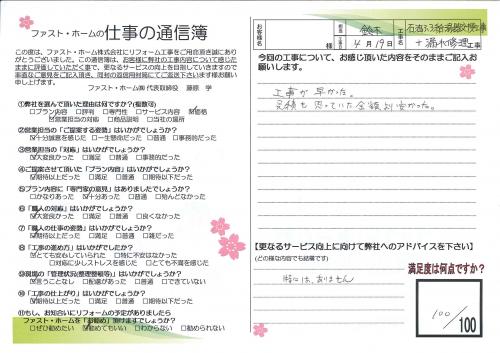 ファスト・ホームの仕事の通信簿
この度は、ファスト・ホーム株式会社にリフォーム工事をご用命頂き誠にあり
がとうございました。この通信簿は、お客様に工事内容について感じた
ままに評価していただく事で、更なるサービスの向上を目指していきますので
率直なご意見をご記入頂き、同封の返信用封筒にてご返送下さいます様お願い
申し上げます。
ファスト・ホーム㈱ 代表取締役 藤原 学
①弊社を選んで頂いた理由は何ですか?(複数可)
□プラン内容 □評判 □専門性 □サービス内容 ☑価格
☑営業担当の対応 □商品説明 □当社の場所
②営業担当の「ご提案する姿勢」はいかがでしょうか?
☑十分誠意を感じた □一生懸命だった □普通 □事務的だった
③営業担当の「対応」はいかがでしょうか?
☑大変良かった □満足 □普通 □事務的だった
④ご提案させて頂いた「プラン内容」はいかがでしょうか?
☑期待以上だった □満足 □普通 □期待以下だった
⑤プラン内容に「専門家の意見」はありましたでしょうか?
□かなりあった ☑十分あった □普通 □殆んどなかった
⑥「職人の対応」はいかがでしょうか?
☑大変良かった □満足 □普通 □良くなかった
⑦「職人の仕事の姿勢」はいかがでしょうか?
☑期待以上だった □満足 □普通 □雑だった
⑧「工事の進め方」はいかがでしたか?
☑とても安心していられた □特に不安はなかった
□対応に少しストレスを感じた □とても不満を感じた
⑨現場の「管理状況(整理整頓等)」はいかがでしょうか?
☑言うことなし □配慮があった □普通 □できていない
⑩「工事の仕上がり」はいかがでしょうか?
☑期待以上だった □満足 □普通 □期待以下だった
⑪もし、お知合いにリフォームの予定がありましたら
ファスト・ホームを「お勧め」頂けますでしょうか?
□ぜひ勧めたい ☑勧めてもいい □わからない □勧められない
お客様名
鈴木
様
4月19日
石油ふろ給湯器交換工事
+漏水修理 工事
今回の工事について、お感じ頂いた内容をそのままご記入お
願いします。
工事が早かった。
見積も思っていた金額より安かった。
【更なるサービス向上に向けて弊社へのアドバイスを下さい】
(どの様な内容でも結構です)
特には、ありません
満足度は何点ですか?
100/100